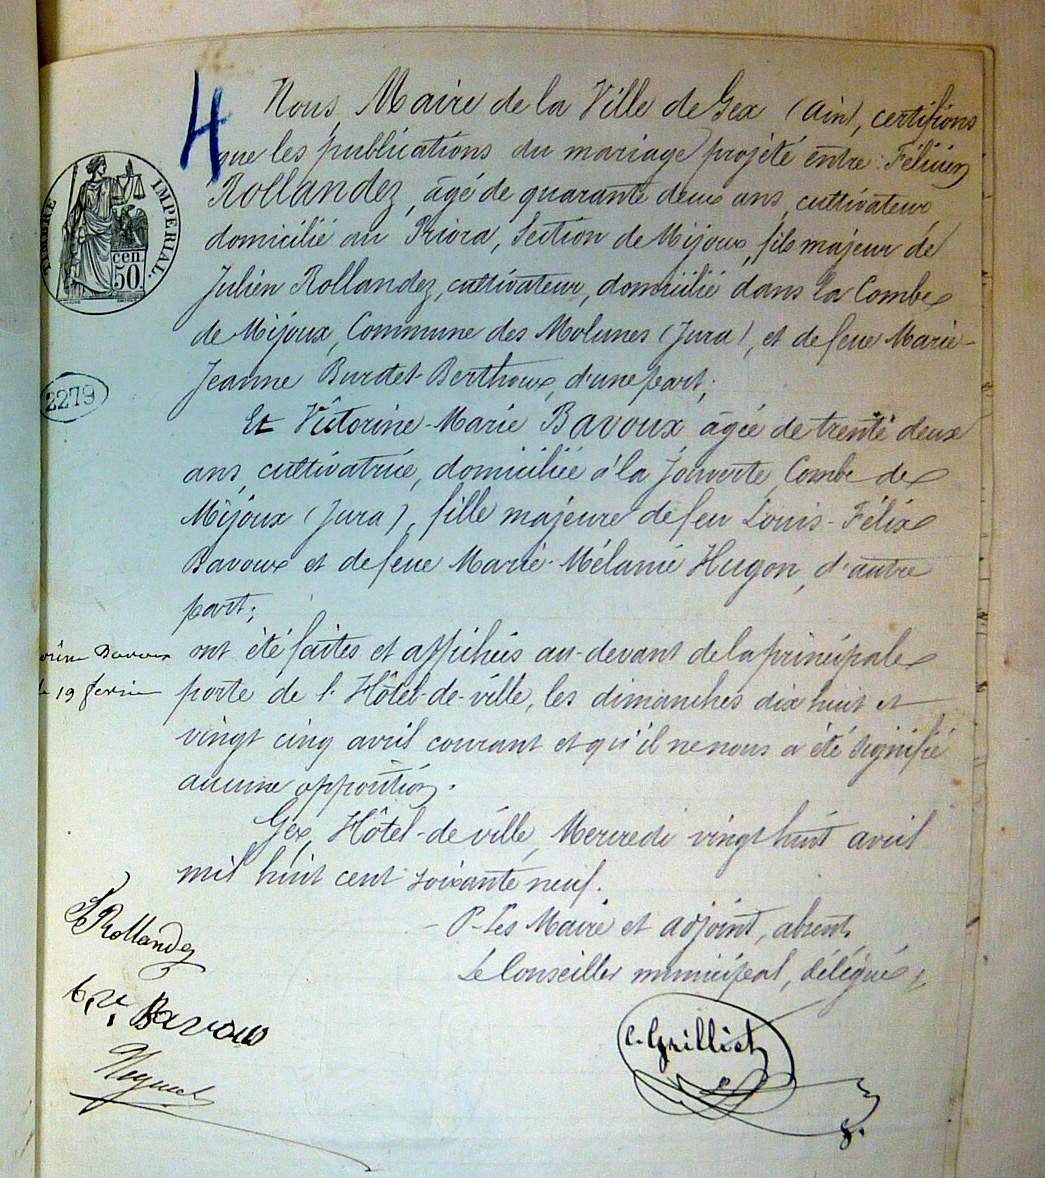 4
Nous, Maire de la Ville de Gex (Ain), certifions
que les publications du mariage projeté entre : Félicien
Rollandez, âgé de quarante deux ans, cultivateur,
domicilié au Priora, Section de Mijoux, fils majeur de
TIMBRE IMPERIAL.
cen.
50
Julien Rollandez, cultivateur, domicilié dans la Combe
de Mijoux, Commune des Molunes (Jura), et de feue Marie-
Jeanne Burdet-Berthoux, d'une part;
2279
Et Victorine-Marie Bavoux âgée de trente deux
ans, cultivatrice, domiciliée à la Joux verte, Combe de
Mijoux (Jura), fille majeure de feu Louis-Félix
Bavoux et de feue Marie-Mélanie Hugon, d'autre
part;
ont été faites et affichées au-devant de la principale
orine Bavoux
19 février
porte de l'Hôtel-de-ville, les dimanches dix huit et
vingt cinq avril courant et qu'il ne nous a été signifié
aucune opposition.
Gex, Hôtel-de-ville, Mercredi vingt huit avril
mil huit cent soixante neuf.
P. Les Maire et adjoint, absent,
Le Conseiller municipal, délégué,
Rollandez
Bavoux
C. Grilliet